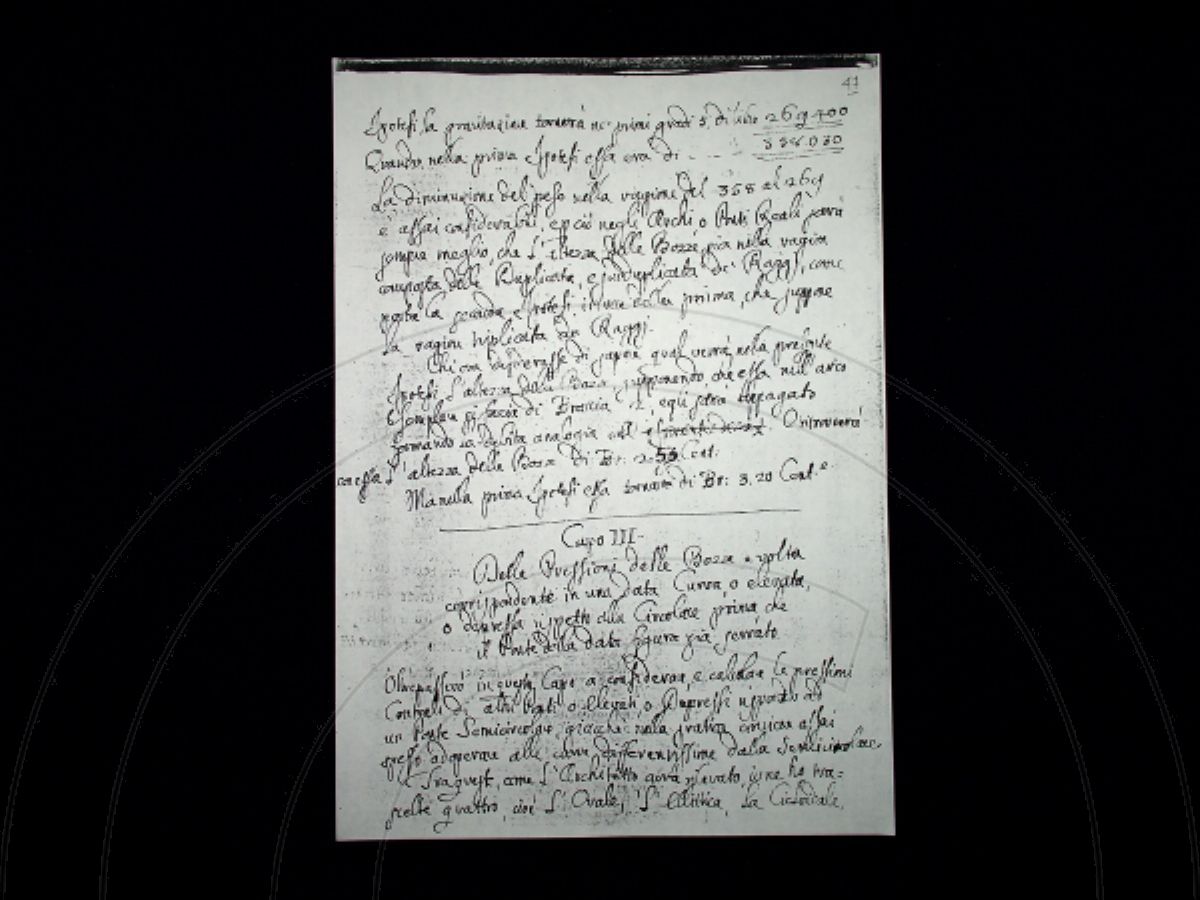 41
Ipotesi la gravitazione tornerà ne' primi gradi 5. di libre 269400
Quando nella prima Ipotesi essa era di 358.030
La diminuzione del peso nella raggione del 358 al 269
è assai considerabile, e però negli Archi o Ponti Reali sarà
sempre meglio, che l'altezza delle Bozze sia nella ragion
composta della Duplicata, e sudduplicata de' Raggi, come
porta la seconda Ipotesi, in vece della prima, che suppone
la ragion triplicata de' Raggi.
Chi ora desiderasse di saper qual verrà nella presente
Ipotesi l'altezza della Bozza, supponendo che essa nell'arco
Esemplare si faccia di Braccia 2, egli sarà appagato
formando la debita analogia nel. Ò ritroverà
con essa l'altezza della Bozza di Br: 2.53 Cent.
Ma nella prima Ipotesi essa tornava di Br: 3.20 Cent.e
Capo III.
Delle Pressioni delle Bozze a volta
corrispondente in una data Curva, o elevata,
o depressa rispetto alla Circolare prima che
il Ponte della data figura sia serrato
Oltrepasserò in questo Capo a considerar, e calcolar le pressioni
Centrali di altri Ponti o Elevati, o Depressi rispetto ad
un Ponte Semicircolare, giacchè nella pratica conviene assai
spesso adoperar delle curve differentissime dalla Semicircolare.
Fra queste, come l'Architetto avrà rilevato, io ne ho tra=
scelte quattro, cioè l'Ovale, l'Ellittica, la Cicloidale,